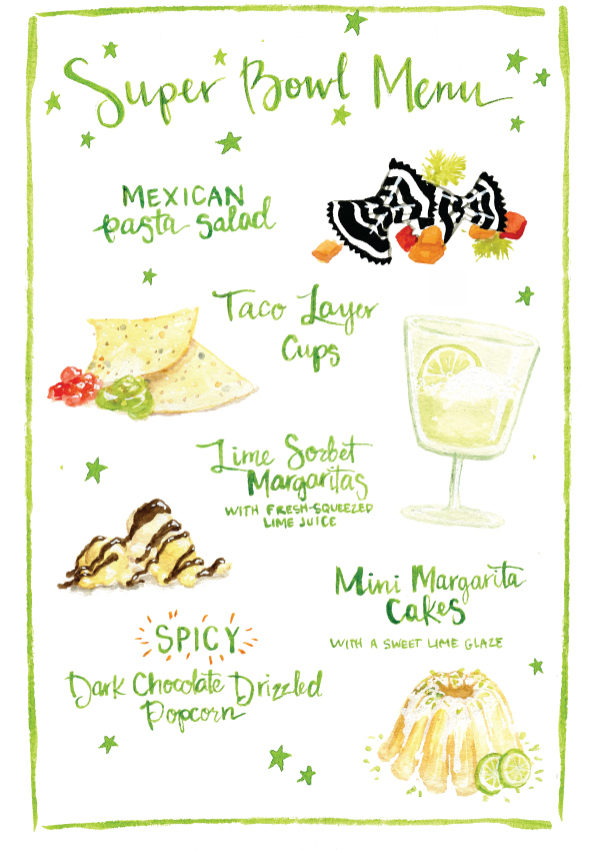 Super Bowl Menu
MEXICAN
pasta salad
Taco Layer
Cups
Lime Sorbet
Margaritas
WITH FRESH-SQUEEZED
LIME JUICE
Mini Margarita
Cakes
WITH A SWEET LIME GLAZE
SPICY
Dark Chocolate Drizzled
Popcorn